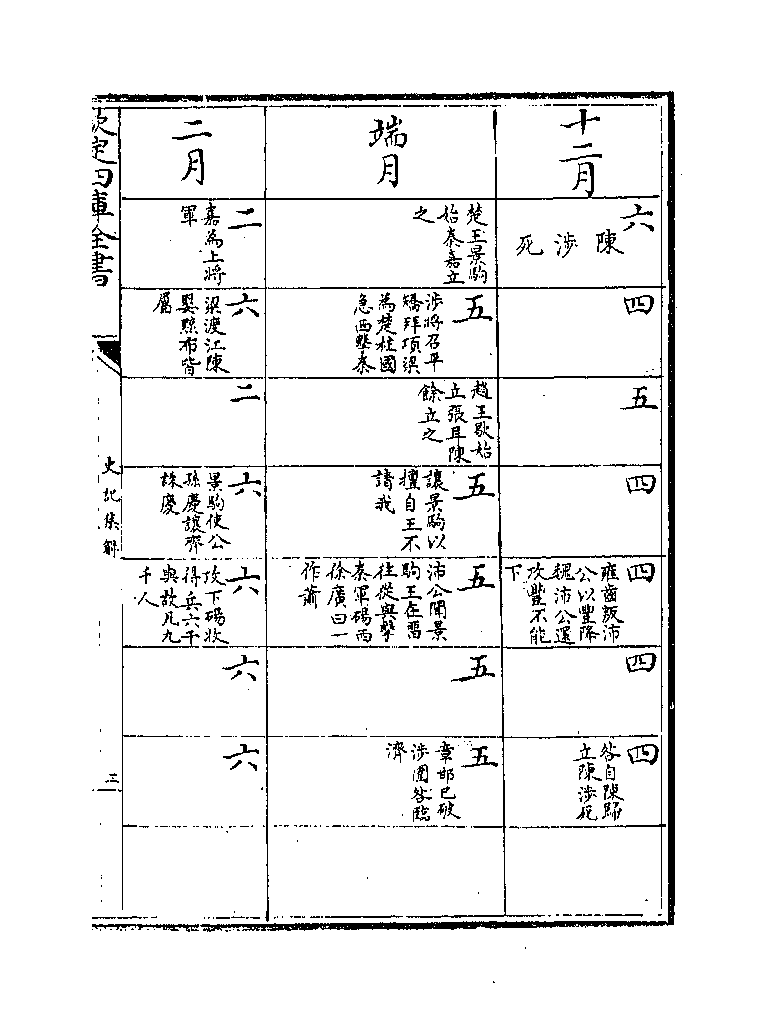 十二月
六
陳涉死
四
五
四
四
雍齒叛沛
公以豐降
魏沛公還
攻豐不能
下
四
四
咎自陳歸
立陳涉死
端月
楚王景駒
始秦嘉立
之
五
涉將召平
矯拜項梁
為楚柱國
急西擊秦
趙王歇始
立張耳陳
餘立之
五
讓景駒以
擅自王不
請我
五
沛公聞景
駒王在留
往從與擊
秦軍碭西
徐廣曰一
作蕭
五
五
章邯已破
涉圍咎臨
濟
二月
二
嘉為上將
軍
六
梁渡江陳
嬰黥布皆
屬
二
六
景駒使公
孫慶讓齊
誅慶
六
攻下碭收
得兵六千
與故凡九
千人
六
六
欽定四庫全書
史記集解
三